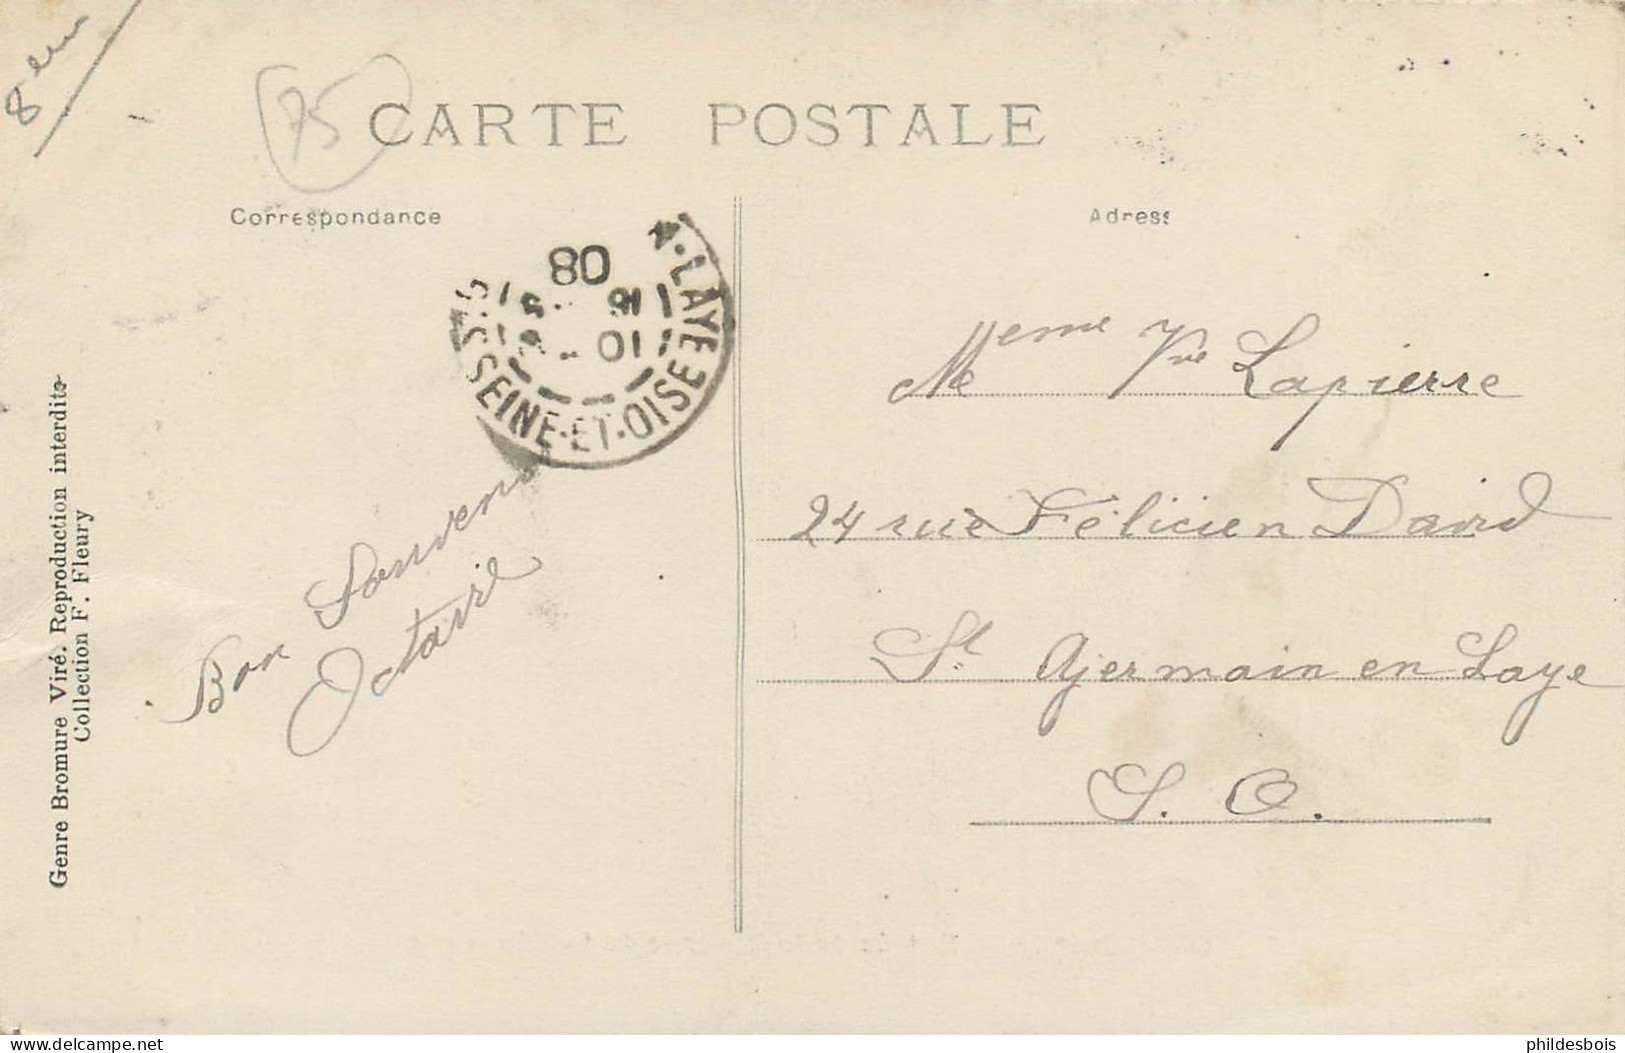 8em
75
CARTE POSTALE
Correspondance
Adress
A-LAYE
SEINE-ET-OISE
08
Meme Vve Lapierre
24 rue Félicien David
St Germain en Laye
S. O.
Bon Souvenir
Octavie
Genre Bromure Viré. Reproduction interdite
Collection F. Fleury
phildesbois
delcampe.net